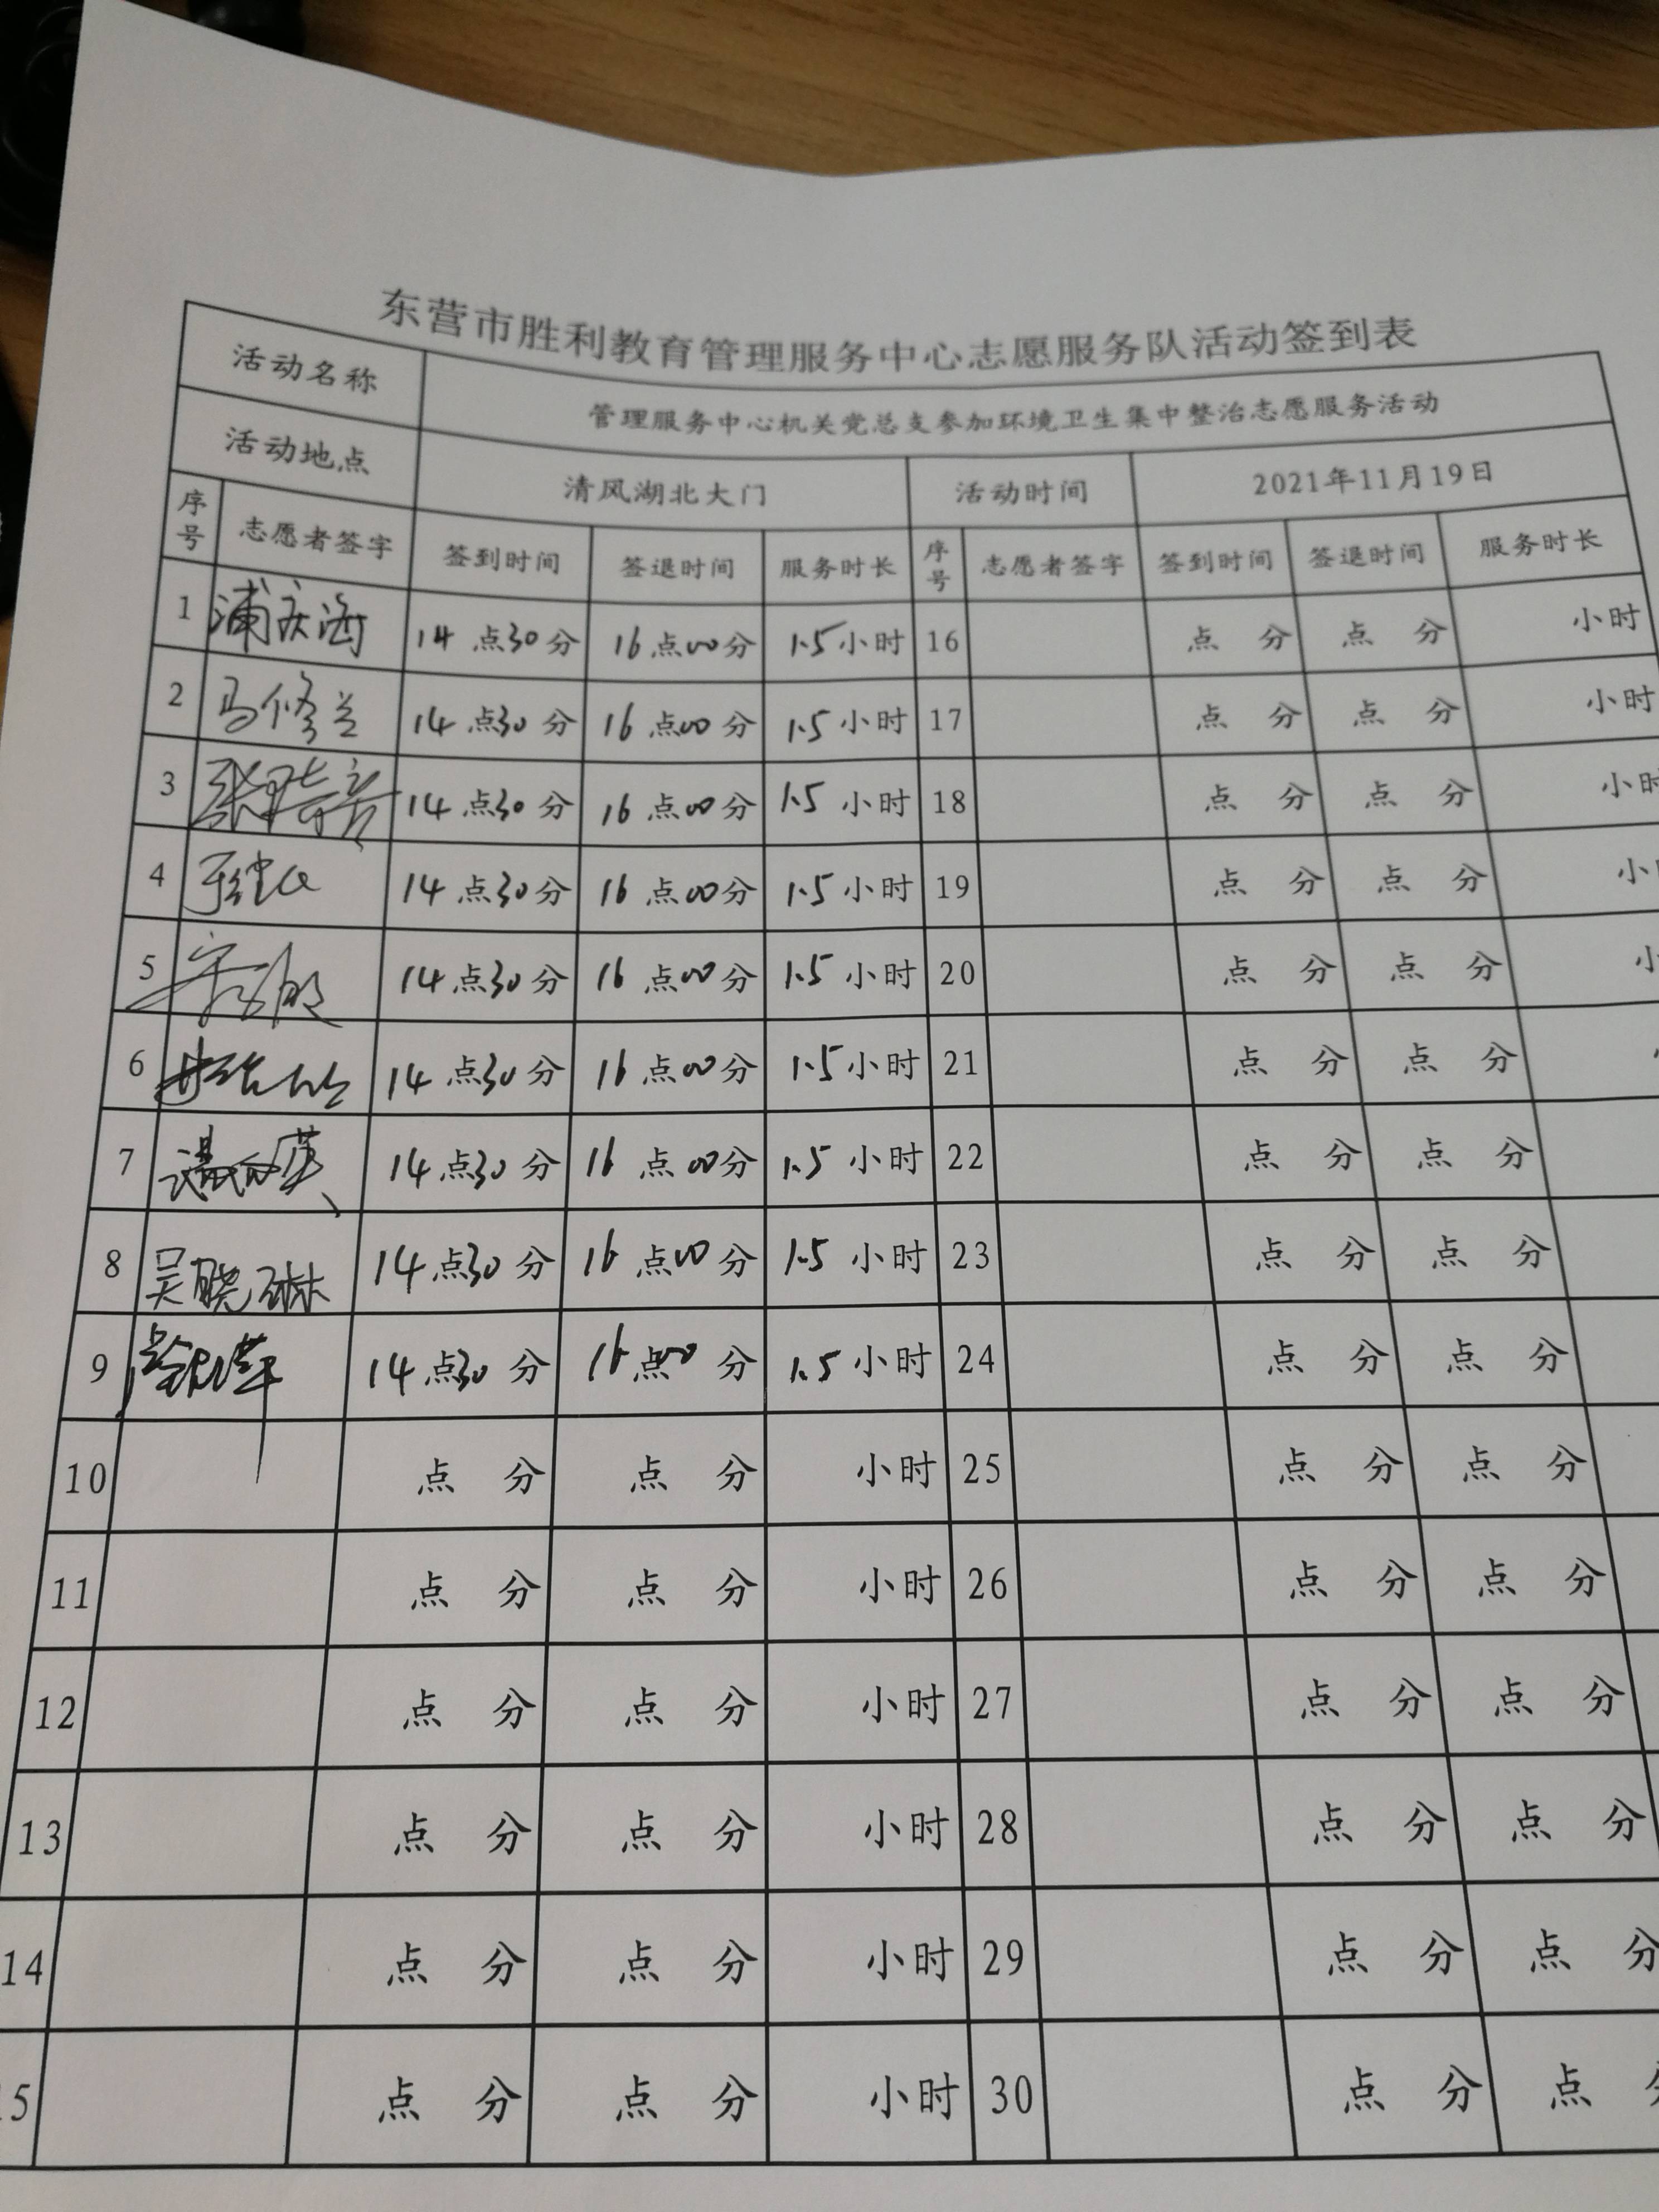 东营市胜利教育管理服务中心志愿服务队活动签到表
活动名称 管理服务中心机关党总支参加环境卫生集中整治志愿服务活动
活动地点 清风湖北大门 活动时间 2021年11月19日
序号 志愿者签字 签到时间 签退时间 服务时长 序号 志愿者签字 签到时间 签退时间 服务时长
1 浦庆海 14点30分 16点00分 1.5小时 16 点 分 点 分 小时
2 马修兰 14点30分 16点00分 1.5小时 17 点 分 点 分 小时
3 14点30分 16点00分 1.5小时 18 点 分 点 分 小时
4 14点30分 16点00分 1.5小时 19 点 分 点 分 小
5 14点30分 16点00分 1.5小时 20 点 分 点 分 小
6 14点30分 16点00分 1.5小时 21 点 分 点 分
7 14点30分 16点00分 1.5小时 22 点 分 点 分
8 吴晓琳 14点30分 16点00分 1.5小时 23 点 分 点 分
9 14点30分 16点00分 1.5小时 24 点 分 点 分
10 点 分 点 分 小时 25 点 分 点 分
11 点 分 点 分 小时 26 点 分 点 分
12 点 分 点 分 小时 27 点 分 点 分
13 点 分 点 分 小时 28 点 分 点 分
14 点 分 点 分 小时 29 点 分 点 分
15 点 分 点 分 小时 30 点 分 点